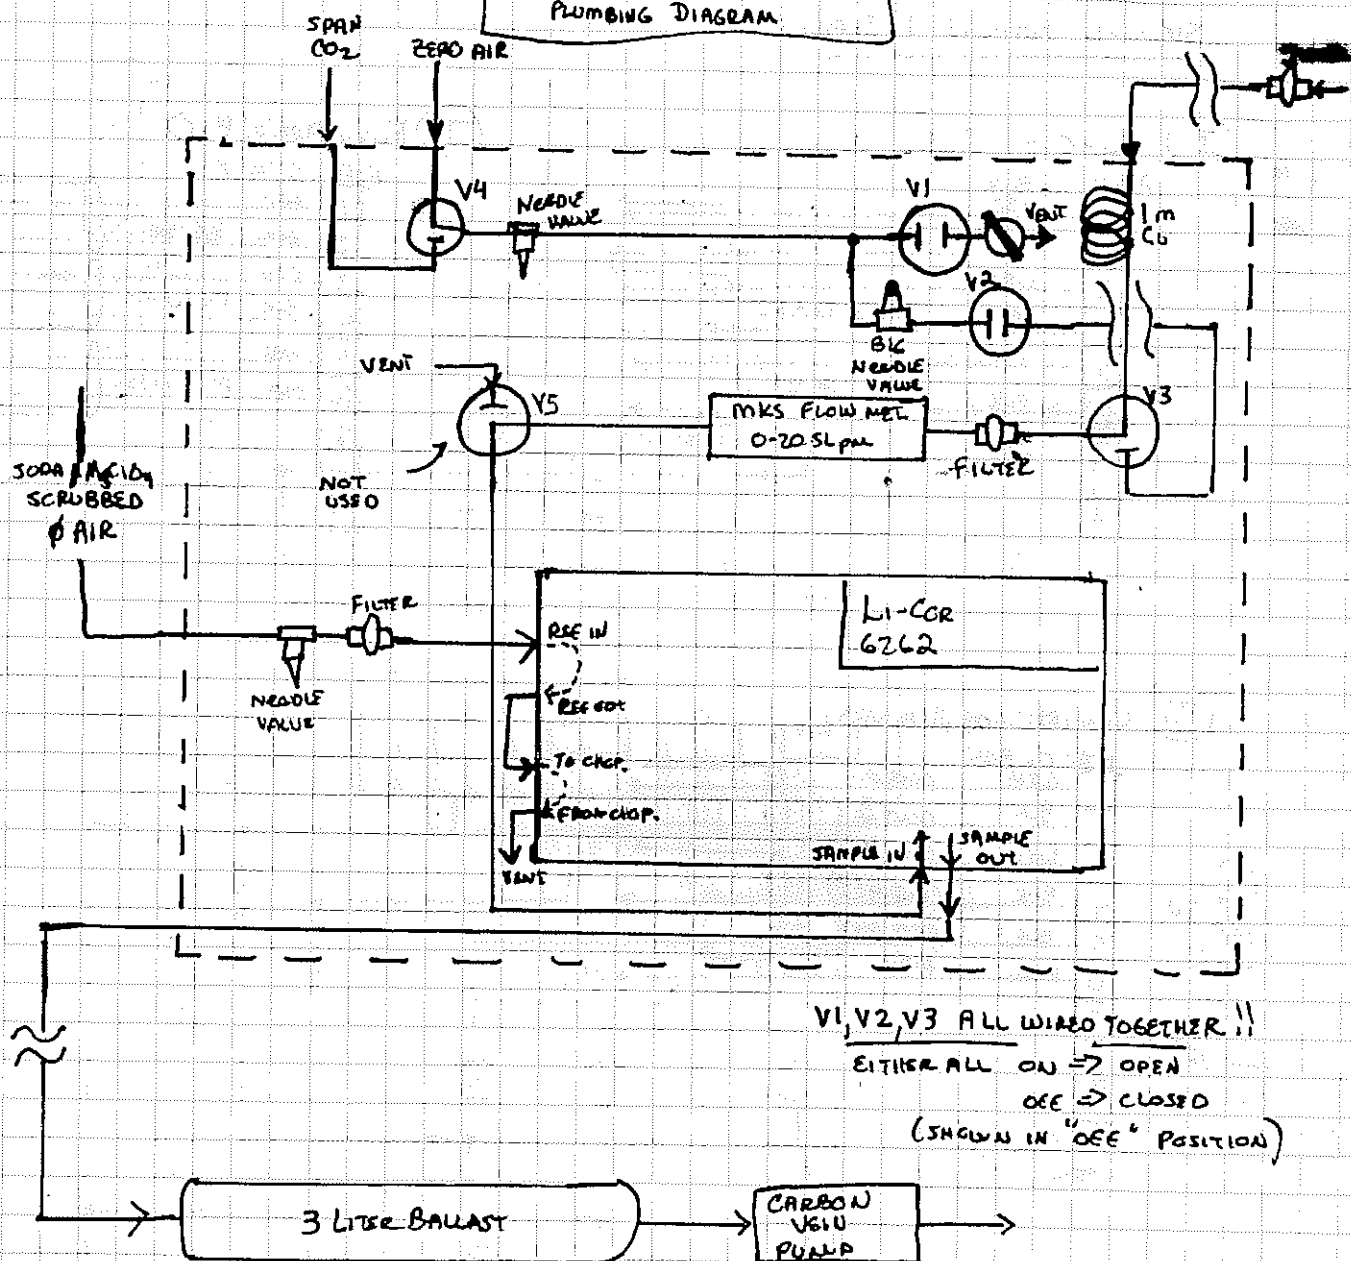 PLUMBING DIAGRAM
SPAN
CO2
ZERO AIR
V4
NEEDLE
VALVE
V1
VENT
1 m
CU
V2
BIG
NEEDLE
VALVE
VENT
V5
NOT
USED
MKS FLOW MET.
0-20 SLpm
FILTER
V3
SODA
SCRUBBED
Ø AIR
FILTER
NEEDLE
VALVE
REF IN
REF OUT
TO CHOP.
FROM CHOP.
VENT
LI-COR
6262
SAMPLE IN
SAMPLE
OUT
V1, V2, V3 ALL WIRED TOGETHER!!
EITHER ALL ON => OPEN
OFF => CLOSED
(SHOWN IN "OFF" POSITION)
3 LITER BALLAST
CARBON
VEIN
PUMP